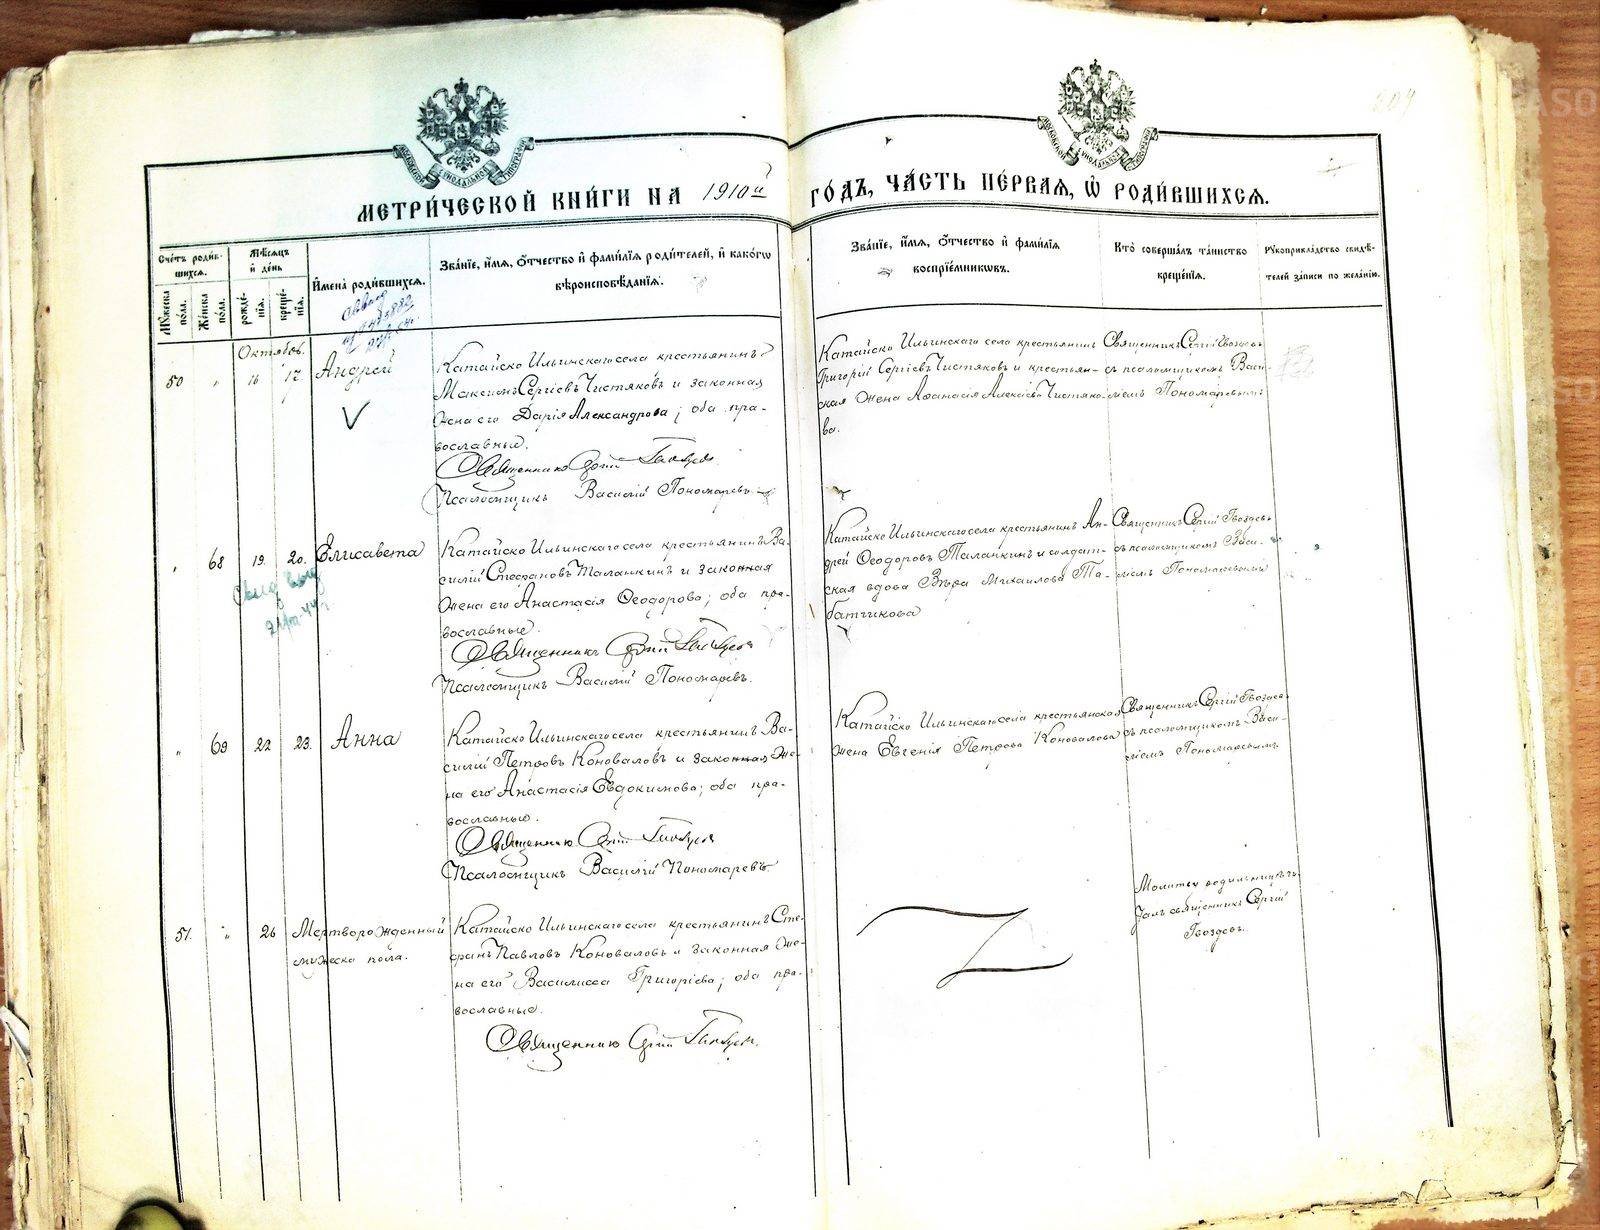 204
МОСКОВСКОЙ СѴНОДАЛЬНОЙ ТИПОГРАФІИ
МОСКОВСКОЙ СѴНОДАЛЬНОЙ ТИПОГРАФІИ
МЕТРИ́ЧЕСКОЙ КНИ́ГИ НА 1910й ГО́ДЪ, ЧА́СТЬ ПЕ́РВАЯ, Ѡ҆ РОДИ́ВШИХСЯ.
Сче́тъ роди́в-
шихся.
Му́жеска по́ла.
Же́нска по́ла.
Мѣ́сяцъ
и҆ де́нь
рожде́-
нія.
креще́-
нія.
И҆мена̀ роди́вшихся.
Зва́нїе, и҆́мя, ѻ҆́тчество и҆ фами́лїя роди́телей, и҆ како́гѡ
вѣроисповѣ́данїя.
Зва́нїе, и҆́мя, ѻ҆́тчество и҆ фами́лїя
воспрїе́мникѡвъ.
Кто̀ соверша́лъ та́инство
креще́нїя.
Рꙋкоприкла́дство свидѣ́-
телей за́писи по жела́нїю.
Октябрь.
50 " 16 17. Андрей
Катайско Ильинскаго села крестьянинъ
Максимъ Сергіевъ Чистяковъ и законная
жена его Дарія Александрова; оба пра-
вославные.
Священникъ Сергій Гвоздевъ
Псаломщикъ Василій Пономаревъ
Катайско Ильинскаго села крестьянинъ
Григорій Сергіевъ Чистяковъ и крестьян-
ская жена Аѳанасія Алексіева Чистяко-
ва.
Священникъ Сергій Гвоздевъ
съ псаломщикомъ Васи-
ліемъ Пономаревымъ
" 68 19. 20. Елисавета
Катайско Ильинскаго села крестьянинъ Ва-
силій Стефановъ Таланкинъ и законная
жена его Анастасія Ѳеодорова; оба пра-
вославные.
Священникъ Сергій Гвоздевъ
Псаломщикъ Василій Пономаревъ.
Катайско Ильинскаго села крестьянинъ Ан-
дрей Ѳеодоровъ Таланкинъ и солдат-
ская вдова Вѣра Михаилова Та-
батчикова
Священникъ Сергій Гвоздевъ
съ псаломщикомъ Васи-
ліемъ Пономаревымъ
" 69 22 23. Анна
Катайско Ильинскаго села крестьянинъ Ва-
силій Петровъ Коноваловъ и законная же-
на его Анастасія Евдокимова; оба пра-
вославные.
Священникъ Сергій Гвоздевъ
Псаломщикъ Василій Пономаревъ
Катайско Ильинскаго села крестьянская
жена Евгенія Петрова Коновалова
Священникъ Сергій Гвоздевъ
съ псаломщикомъ Васи-
ліемъ Пономаревымъ
51. " 26 Мертворожденный
мужеска пола.
Катайско Ильинскаго села крестьянинъ Сте-
фанъ Павловъ Коноваловъ и законная же-
на его Василисса Григоріева; оба пра-
вославные.
Священникъ Сергій Гвоздевъ.
Молитву родильницѣ чи-
талъ священникъ Сергій
Гвоздевъ.